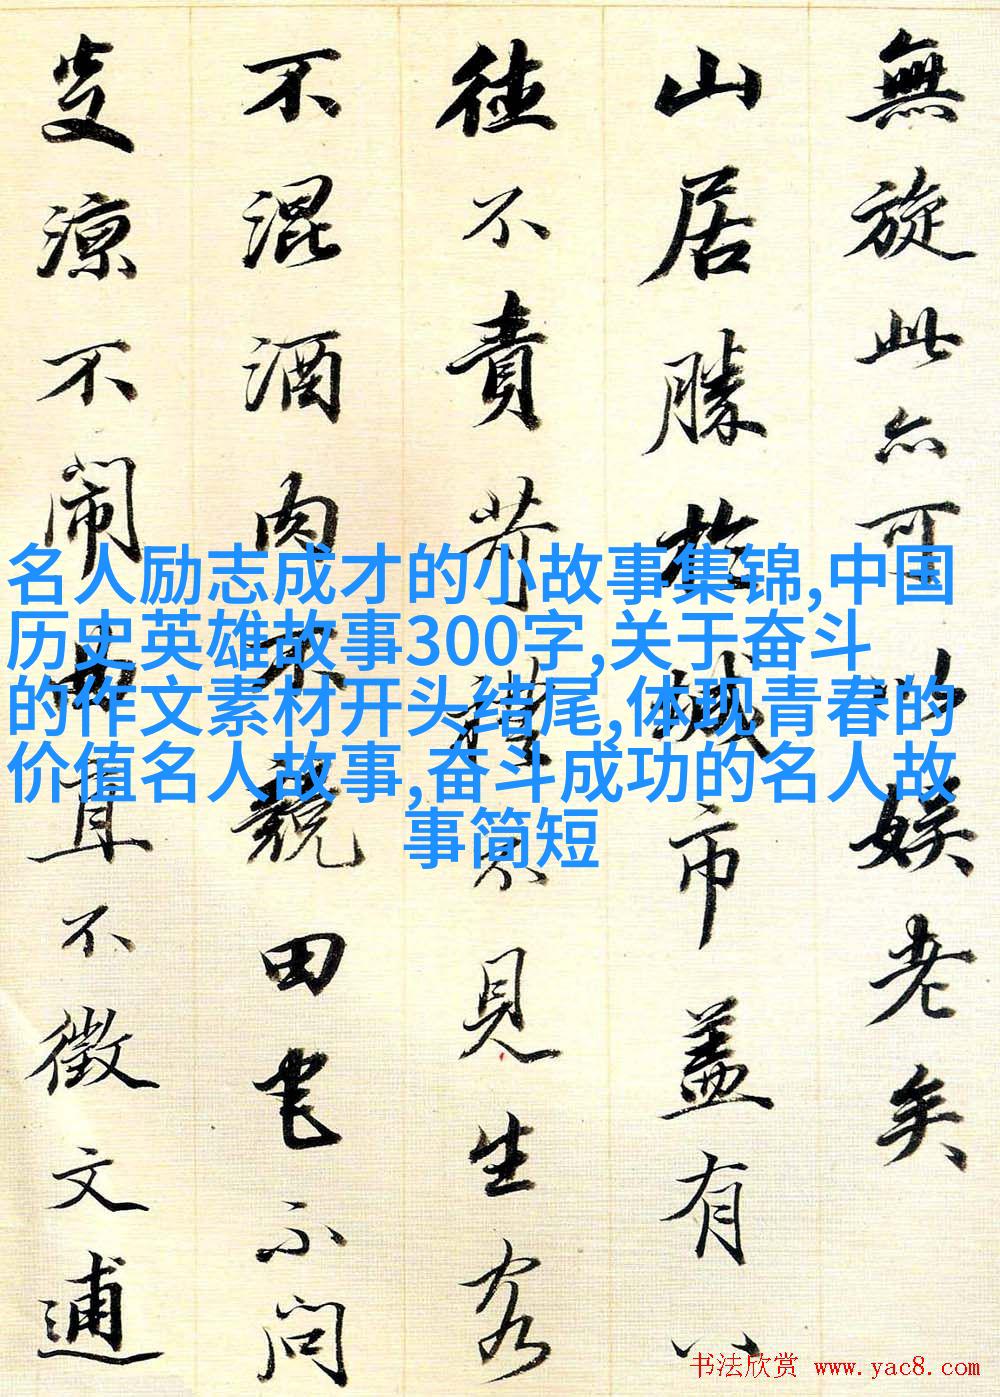 無旋此亦可以娱老矣
山居勝於城市盖有八
德不責苛禮不見生客
不混酒肉不競田宅不問
炎涼不闹曲直不徵文逋
名人励志成才的小故事集锦,中国
历史英雄故事300字,关于奋斗
的作文素材开头结尾,体现青春的
价值名人故事,奋斗成功的名人故
事简短
书法欣赏 www.yac8.com